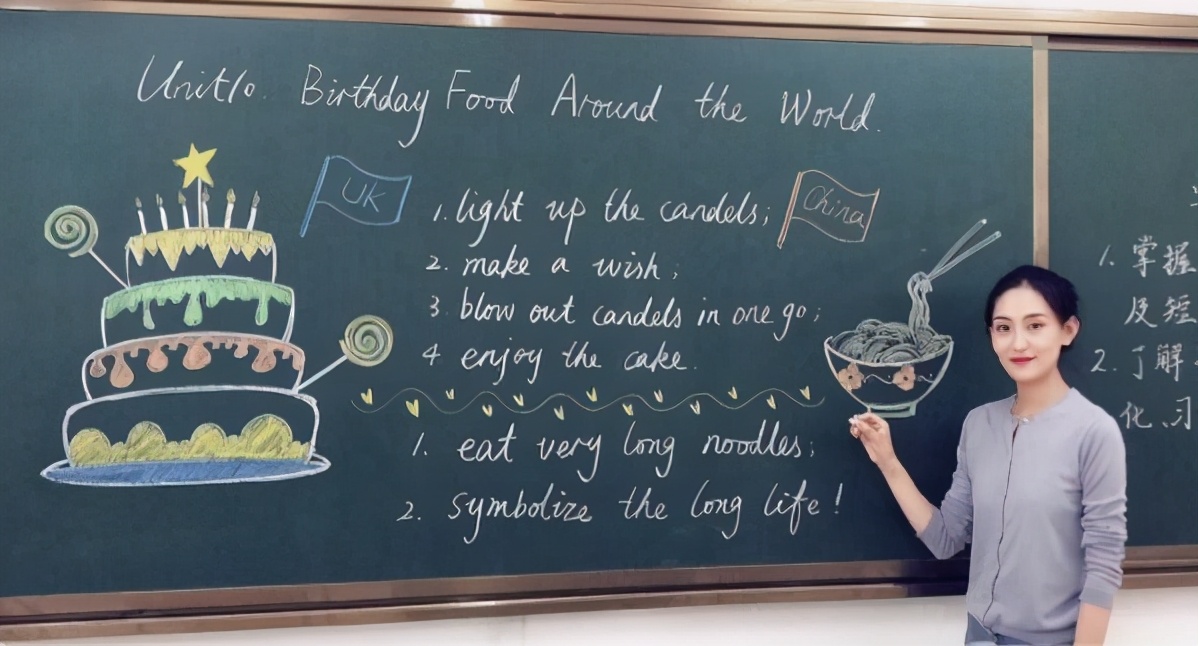 Unit10. Birthday Food Around the World.
UK
1. light up the candels;
2. make a wish;
3 blow out candels in one go;
4 enjoy the cake.
China
1. eat very long noodles;
2. symbolize the long life!
1. 掌握
及短
2. 了解
化、习